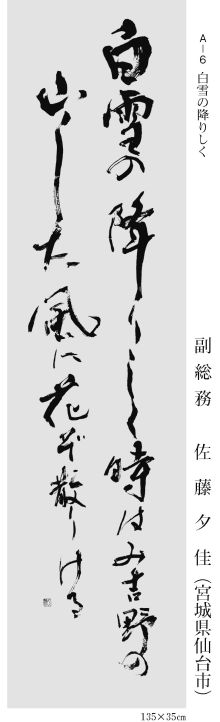 A－6 白雪の降りしく
副総務　佐藤夕佳（宮城県仙台市）
白雪の降りしく時はみ吉野の
山した風に花ぞ散りける
135×35cm